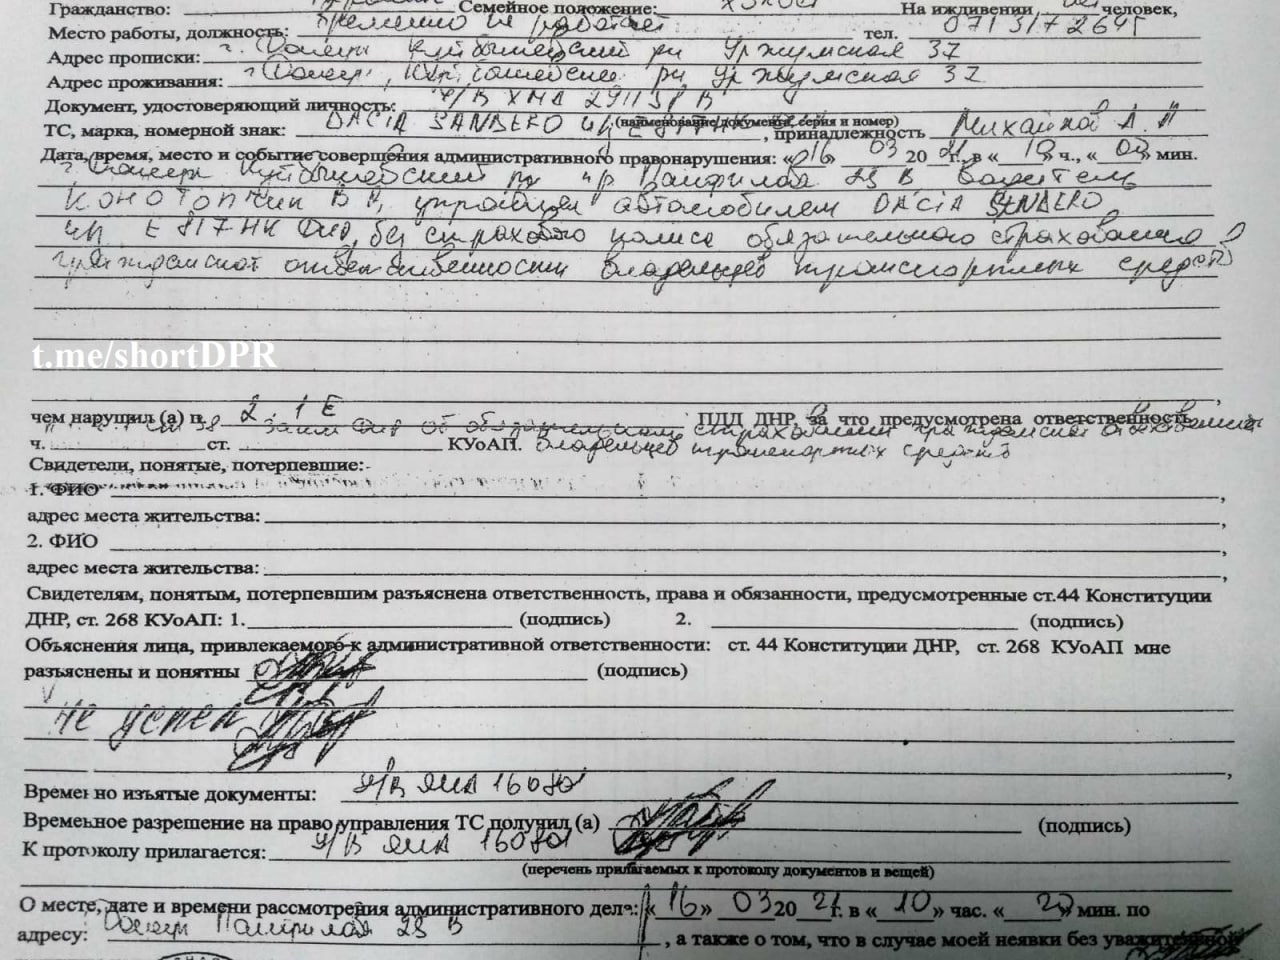 Гражданство: Семейное положение: холост На иждивении человек,
Место работы, должность: временно не работает тел. 071 317 264
Адрес прописки: г. Донецк Куйбышевский р-н Уржумская 37
Адрес проживания: г. Донецк, Куйбышевский р-н Уржумская 37
Документ, удостоверяющий личность: ЧЛВ ХМА
(наименование документа, серия и номер)
ТС, марка, номерной знак: DACIA SANDERO , принадлежность Михайлов А. А
Дата, время, место и событие совершения административного правонарушения: «16» 03 20 21г. в « 10» ч., « 00» мин.
г. Донецк Куйбышевский р-н Панфилова 23 В водитель
Конотопчик В А, управлял автомобилем DACIA SENDERO
Е 817 НК без страхового полиса обязательного страхования
гражданской ответственности владельцев транспортных средств
t.me/shortDPR
чем нарушил (а) п. 2 1 Е ПДД ДНР, за что предусмотрена ответственность
об обязательном страховании гражданской ответственности
ч. ст. КУоАП. владельцев транспортных средств
Свидетели, понятые, потерпевшие:
1. ФИО ,
адрес места жительства: ,
2. ФИО ,
адрес места жительства: ,
Свидетелям, понятым, потерпевшим разъяснена ответственность, права и обязанности, предусмотренные ст.44 Конституции
ДНР, ст. 268 КУоАП: 1. (подпись) 2. (подпись)
Объяснения лица, привлекаемого к административной ответственности: ст. 44 Конституции ДНР, ст. 268 КУоАП мне
разъяснены и понятны (подпись)
Не успел
Временно изъятые документы: 16080
Временное разрешение на право управления ТС получил (а) (подпись)
К протоколу прилагается: 16080
(перечень прилагаемых к протоколу документов и вещей)
О месте, дате и времени рассмотрения административного дела: «16» 03 20 21г. в « 10» час. « 20» мин. по
адресу: Донецк Панфилова 23 В , а также о том, что в случае моей неявки без уважительной